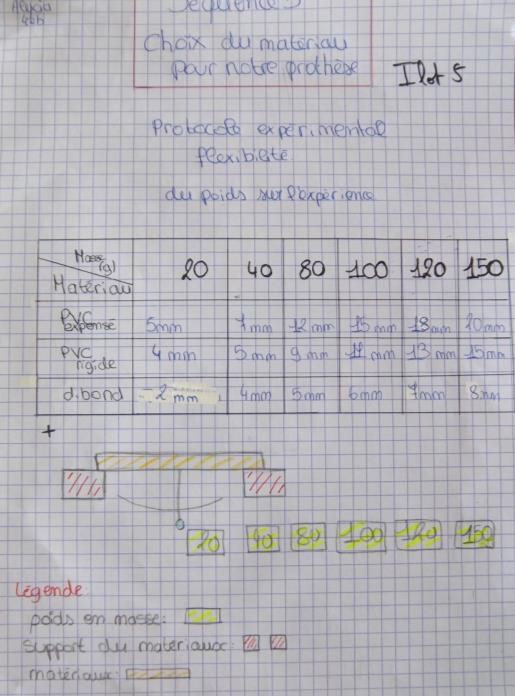 Alycia
Séquence 3
Choix du matériau
pour notre prothèse
Ilot 5
Protocole expérimental
flexibilité
du poids sur l'expérience
Masse (g) 20 40 80 100 120 150
Matériau
PVC expensé 5mm 7mm 12mm 15mm 18mm 20mm
PVC rigide 4mm 5mm 9mm 11mm 13mm 15mm
d.bond 2mm 4mm 5mm 6mm 7mm 8mm
+
20 40 80 100 120 150
Légende
poids en masse:
Support du matériaux:
matériaux: